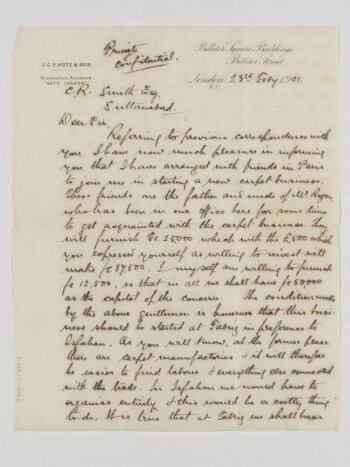 Private
Confidential.
J. C. P. HOTZ & SON.
TELEGRAPHIC ADDRESS,
HOTZ, LONDON.
Billiter Square Buildings
Billiter Street
London 23rd Feby 1901
E.C.
E. R. Smith Esq
Sultanabad.
Dear Sir,
Referring to previous correspondence with
you I have now much pleasure in informing
you that I have arranged with friends in Paris
to join me in starting a new carpet business.
These friends are the father and uncle of Mr
who has been in our office here for some time
to get acquainted with the carpet business. They
will furnish fc 25,000 which with the £500 which
you expressed yourself as willing to invest will
make fc 37500. I myself am willing to furnish
fc 12,500, so that in all we shall have fc 50000
as the capital of the concern. The condition made
by the above gentlemen is however that this busi-
ness should be started at Tabriz in preference to
Isfahan. As you will know, at the former place
there are carpet manufactures & it will therefore
be easier to find labour & everything else connected
with the trade. In Isfahan we would have to
organise entirely & this would be a costly thing
to do. It is true that at Tabriz we shall have